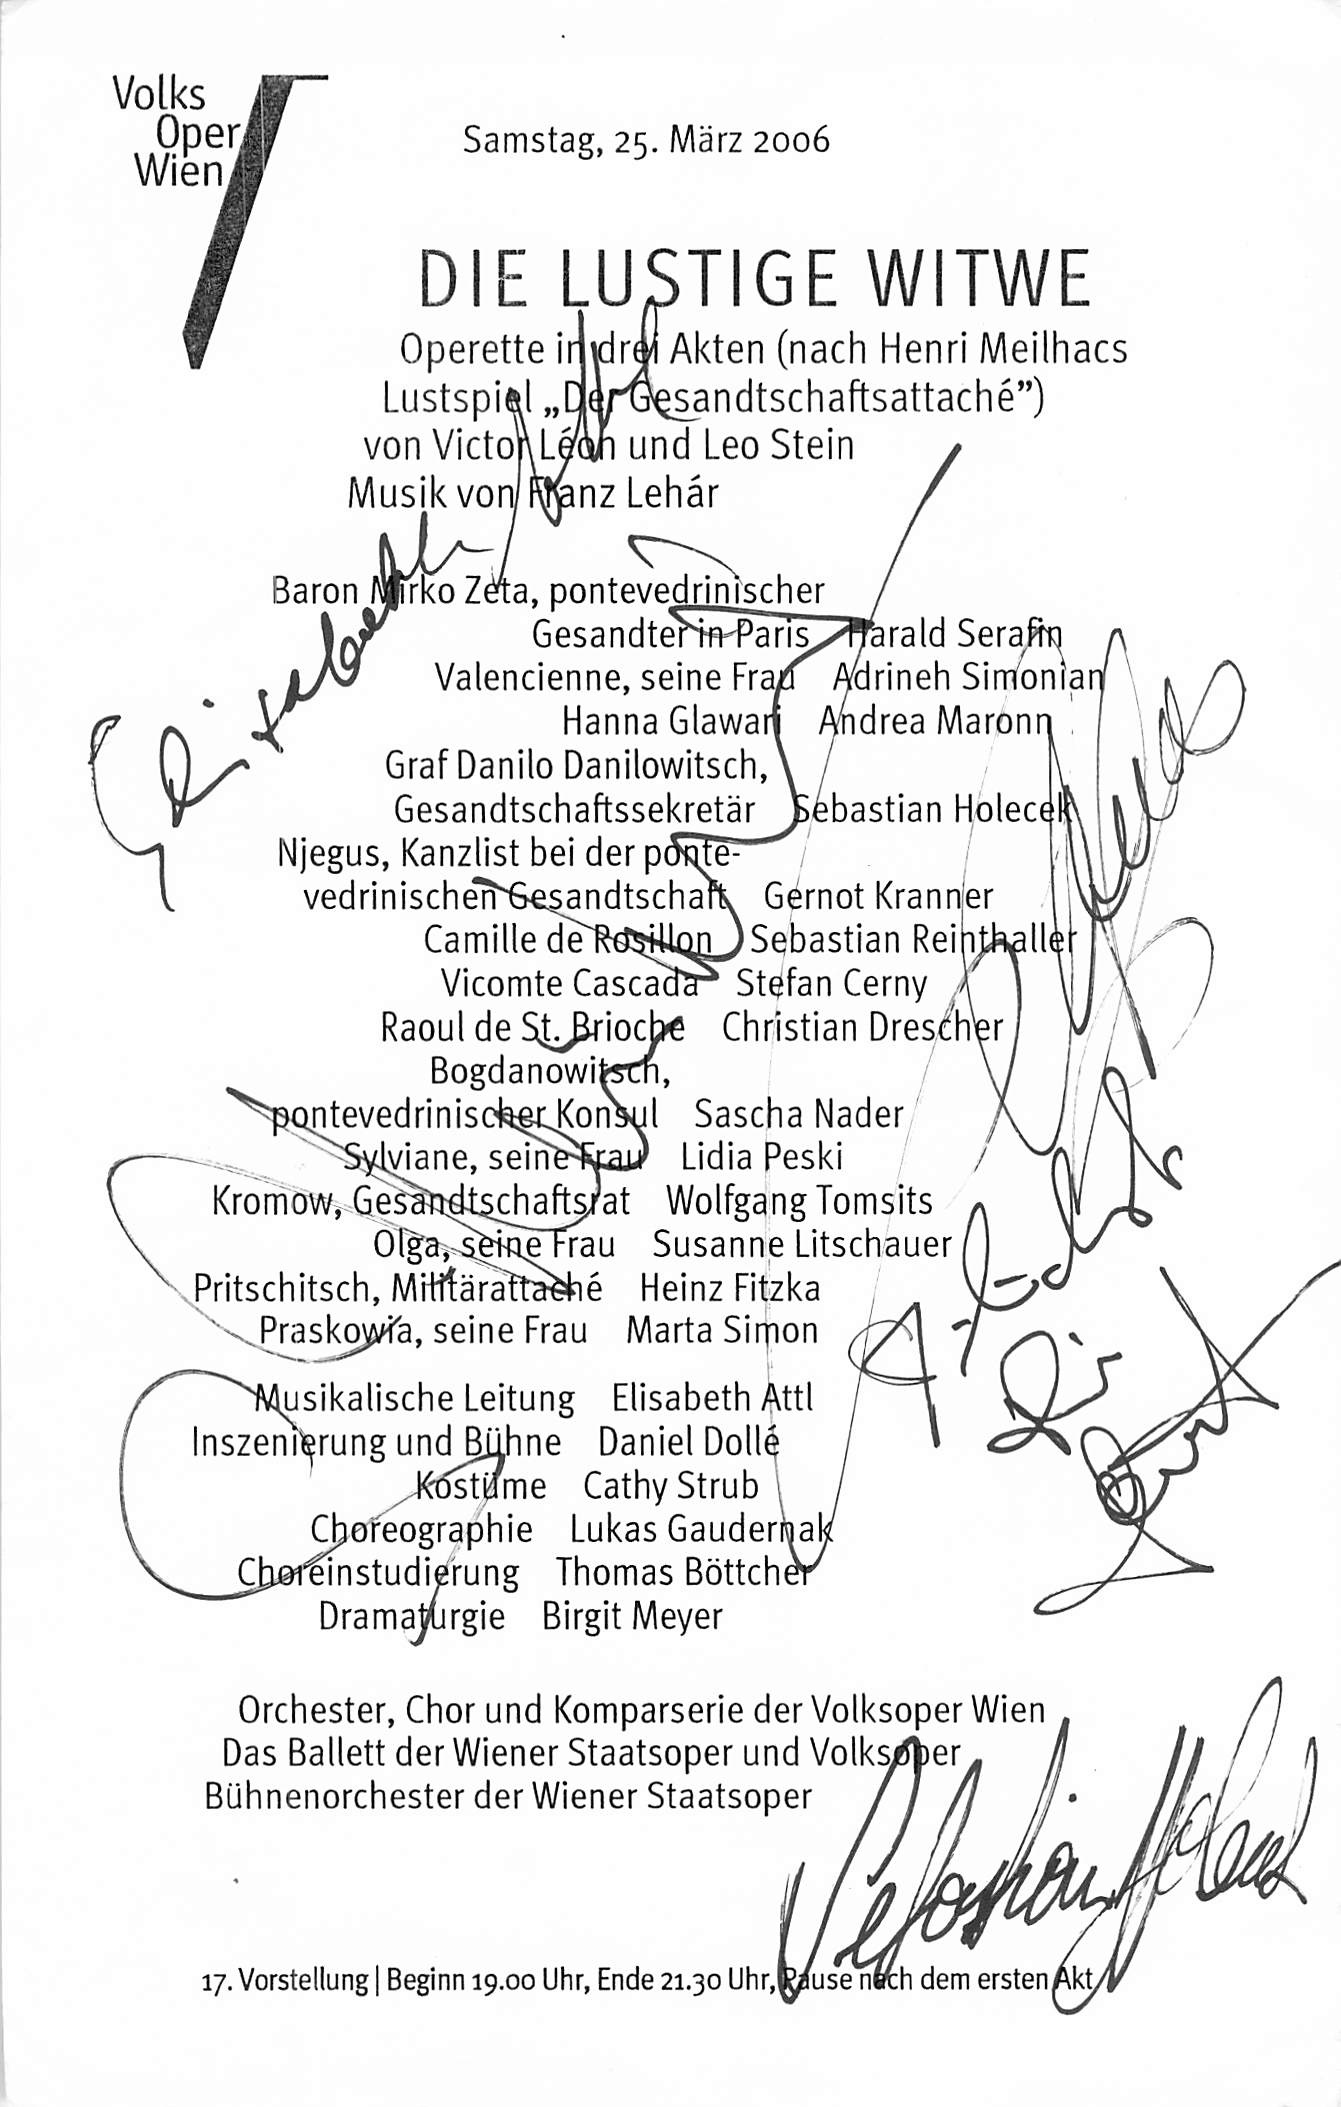 Volks
Oper
Wien
Samstag, 25. März 2006
DIE LUSTIGE WITWE
Operette in drei Akten (nach Henri Meilhacs
Lustspiel „Der Gesandtschaftsattaché”)
von Victor Léon und Leo Stein
Musik von Franz Lehár
Baron Mirko Zeta, pontevedrinischer
Gesandter in Paris Harald Serafin
Valencienne, seine Frau Adrineh Simonian
Hanna Glawari Andrea Maronn
Graf Danilo Danilowitsch,
Gesandtschaftssekretär Sebastian Holecek
Njegus, Kanzlist bei der ponte-
vedrinischen Gesandtschaft Gernot Kranner
Camille de Rosillon Sebastian Reinthaller
Vicomte Cascada Stefan Cerny
Raoul de St. Brioche Christian Drescher
Bogdanowitsch,
pontevedrinischer Konsul Sascha Nader
Sylviane, seine Frau Lidia Peski
Kromow, Gesandtschaftsrat Wolfgang Tomsits
Olga, seine Frau Susanne Litschauer
Pritschitsch, Militärattaché Heinz Fitzka
Praskowia, seine Frau Marta Simon
Musikalische Leitung Elisabeth Attl
Inszenierung und Bühne Daniel Dollé
Kostüme Cathy Strub
Choreographie Lukas Gaudernak
Choreinstudierung Thomas Böttcher
Dramaturgie Birgit Meyer
Orchester, Chor und Komparserie der Volksoper Wien
Das Ballett der Wiener Staatsoper und Volksoper
Bühnenorchester der Wiener Staatsoper
17. Vorstellung | Beginn 19.00 Uhr, Ende 21.30 Uhr, Pause nach dem ersten Akt
Elisabeth Attl
Sebastian Holecek